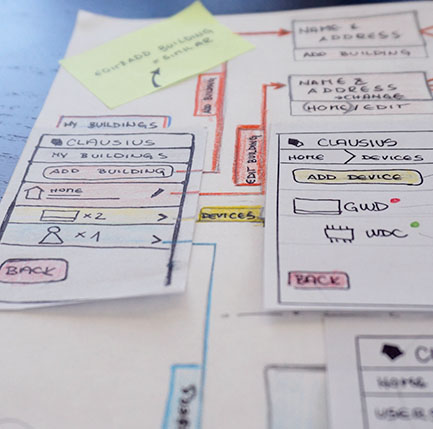 NAME &
ADDRESS
ADD BUILDING
ADD BUILDING
NAME &
ADDRESS
→CHANGE
(HOME)/EDIT
EDIT BUILDING
MY BUILDINGS
CLAUSIUS
MY BUILDINGS
ADD BUILDING
HOME
×2
×1
BACK
DEVICES
CLAUSIUS
HOME > DEVICES
ADD DEVICE
GWD
WDC
BACK
HOME
USERS